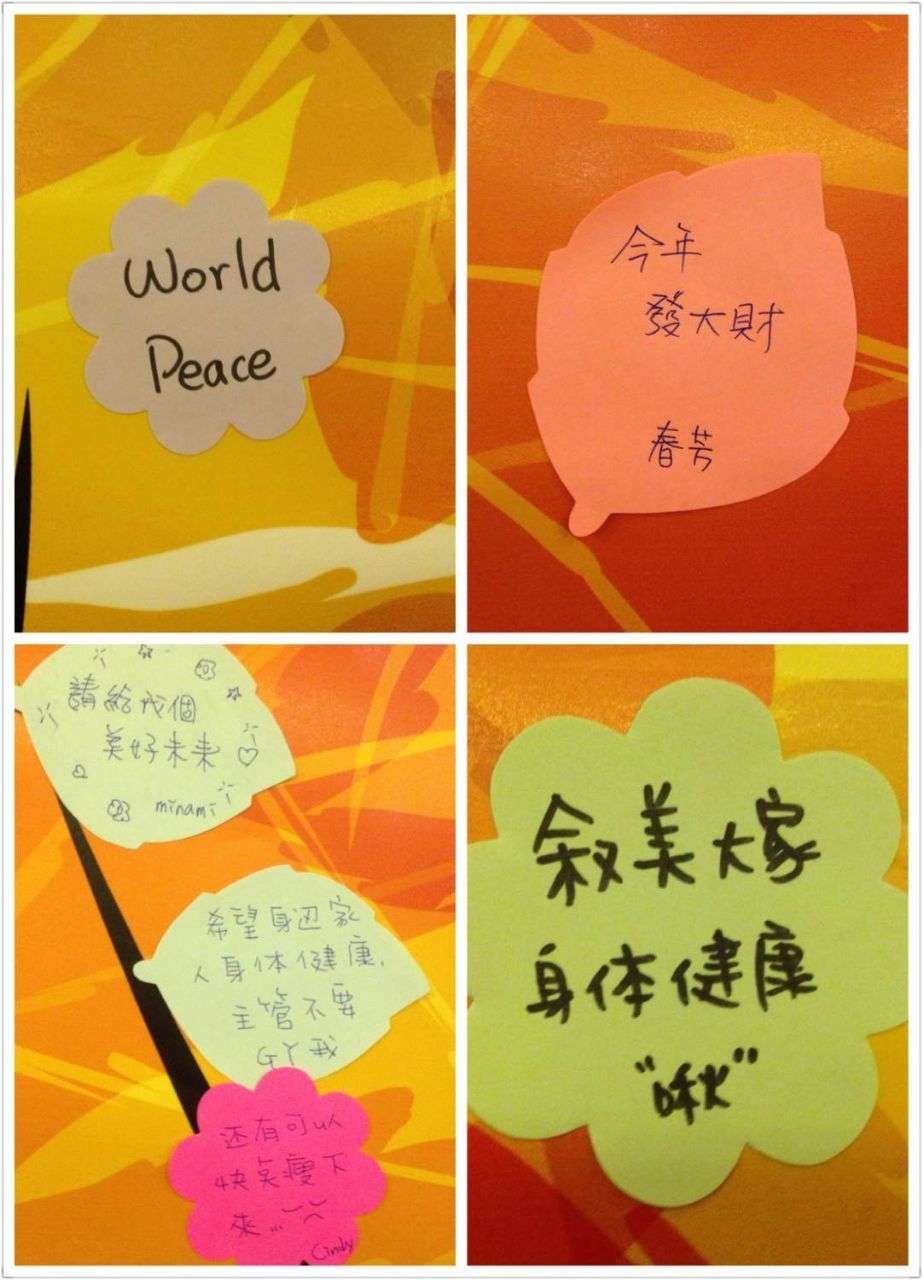 World
Peace
今年
發大財
春芳
請給我個
美好未來
minami
希望身边家
人身体健康,
主管不要
GY我
还有可以
快点瘦下
來...
Cindy
叙美大家
身体健康
"啾"